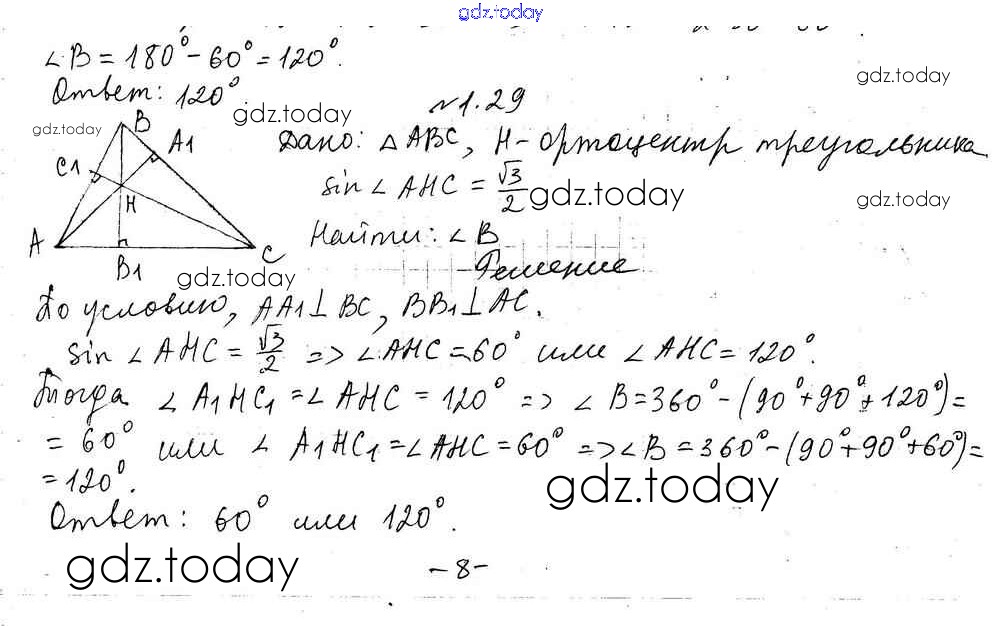 gdz.today
∠B = 180° - 60° = 120°.
gdz.today
Ответ: 120°
gdz.today
№1.29
gdz.today
B
A1
C1
H
A
C
B1
Дано: △ABC, H - ортоцентр треугольника
sin ∠AHC = √3/2
gdz.today
gdz.today
Найти: ∠B
Решение
gdz.today
По условию, AA1⊥BC, BB1⊥AC.
sin ∠AHC = √3/2 => ∠AHC = 60° или ∠AHC = 120°.
Тогда ∠A1HC1 = ∠AHC = 120° => ∠B = 360° - (90° + 90° + 120°) =
= 60° или ∠A1HC1 = ∠AHC = 60° => ∠B = 360° - (90° + 90° + 60°) =
= 120°.
gdz.today
Ответ: 60° или 120°.
gdz.today
- 8 -